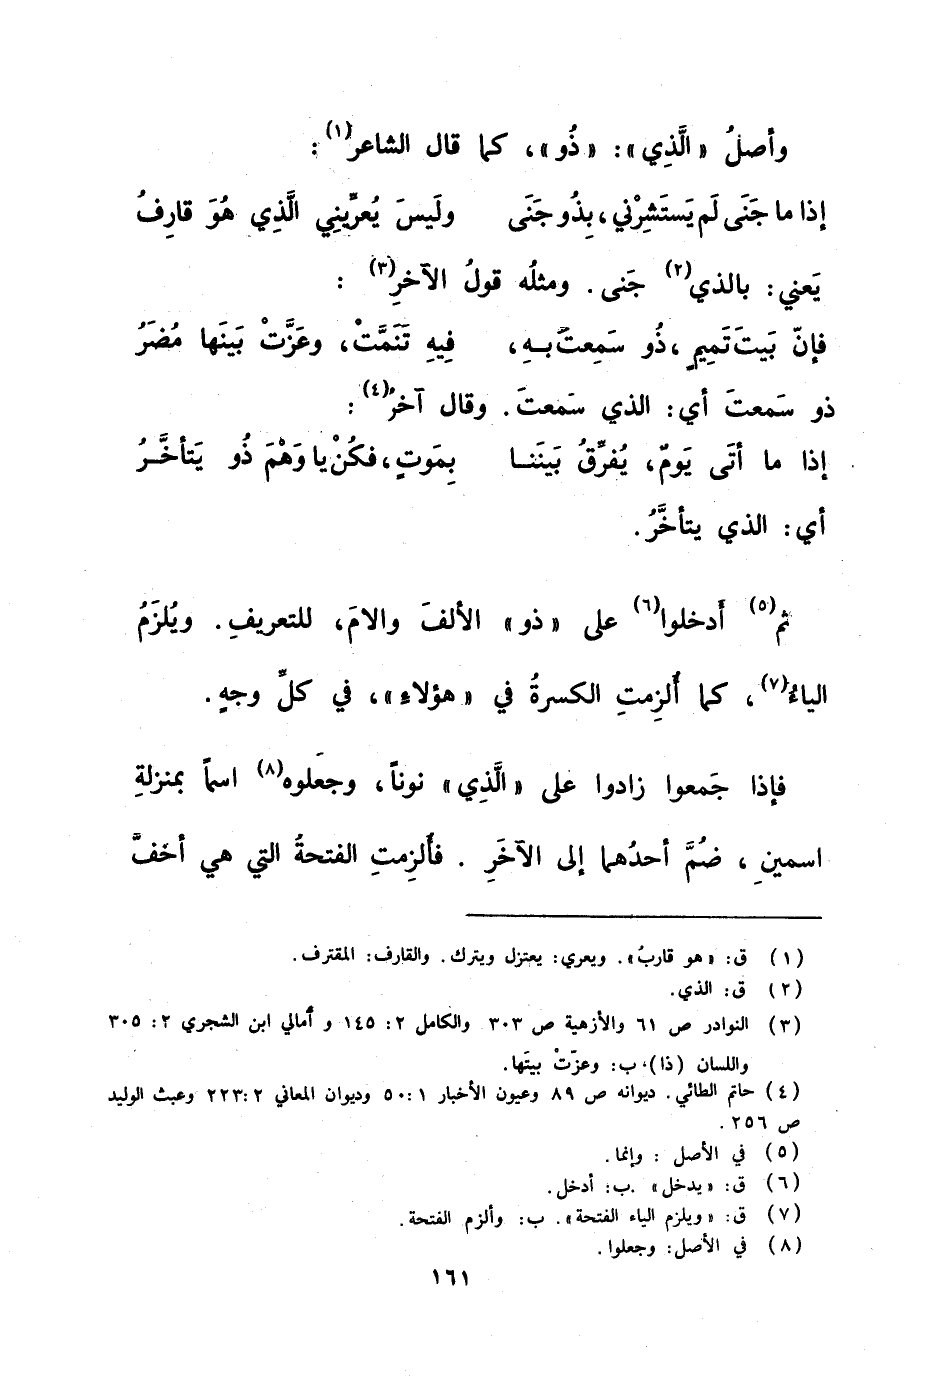 وأصلُ «الَّذِي»: «ذُو»، كما قال الشاعر(١):
إذا ما جَنَى لَم يَستَشِرْني، بِذُو جَنَى    ولَيسَ يُعرِّيني الَّذِي هُوَ قارِفُ
يَعني: بالذي(٢) جَنى. ومثلُه قولُ الآخرِ(٣) :
فإنّ بَيتَ تَمِيمٍ، ذُو سَمِعتَ بهِ،    فِيهِ تَنَمَّتْ، وعَزَّتْ بَينَها مُضَرُ
ذو سَمعتَ أي: الذي سَمعتَ. وقال آخرُ(٤):
إذا ما أتَى يَومٌ، يُفرِّقُ بَينَنا    بِمَوتٍ، فكُنْ يا وَهْمَ ذُو يَتأخَّرُ
أي: الذي يتأخَّرُ.
ثم(٥) أَدخلوا(٦) على «ذو» الألفَ والامَ، للتعريفِ. ويُلزَمُ
الياءُ(٧)، كما أُلزِمتِ الكسرةُ في «هؤلاءِ»، في كلِّ وجهٍ.
فإذا جَمعوا زادوا على «الَّذِي» نوناً، وجعَلوه(٨) اسماً بمنزلةِ
اسمينِ، ضُمَّ أحدُهما إلى الآخَرِ . فأُلزِمتِ الفتحةُ التي هي أخفَّ
(١) ق: «هو قاربُ». ويعري: يعتزل ويترك. والقارف: المقترف.
(٢) ق: الذي.
(٣) النوادر ص ٦١ والأزهية ص ٣٠٣ والكامل ٢: ١٤٥ و أمالي ابن الشجري ٢: ٣٠٥
واللسان (ذا). ب: وعزّتْ بيتَها.
(٤) حاتم الطائي. ديوانه ص ٨٩ وعيون الأخبار ١: ٥٠ وديوان المعاني ٢: ٢٢٣ وعبث الوليد
ص ٢٥٦.
(٥) في الأصل : وإنما.
(٦) ق: «يدخل» .ب: أدخل.
(٧) ق: «ويلزم الياء الفتحة». ب: وألزم الفتحة.
(٨) في الأصل: وجعلوا.
١٦١